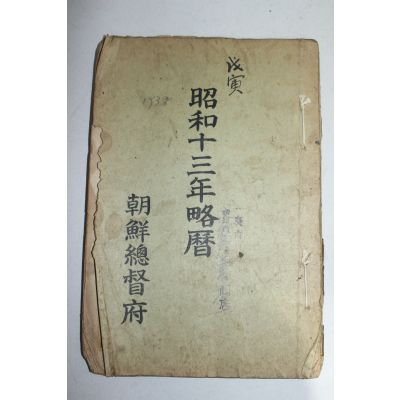 戊寅
昭和十三年略暦
1938
朝鮮總督府